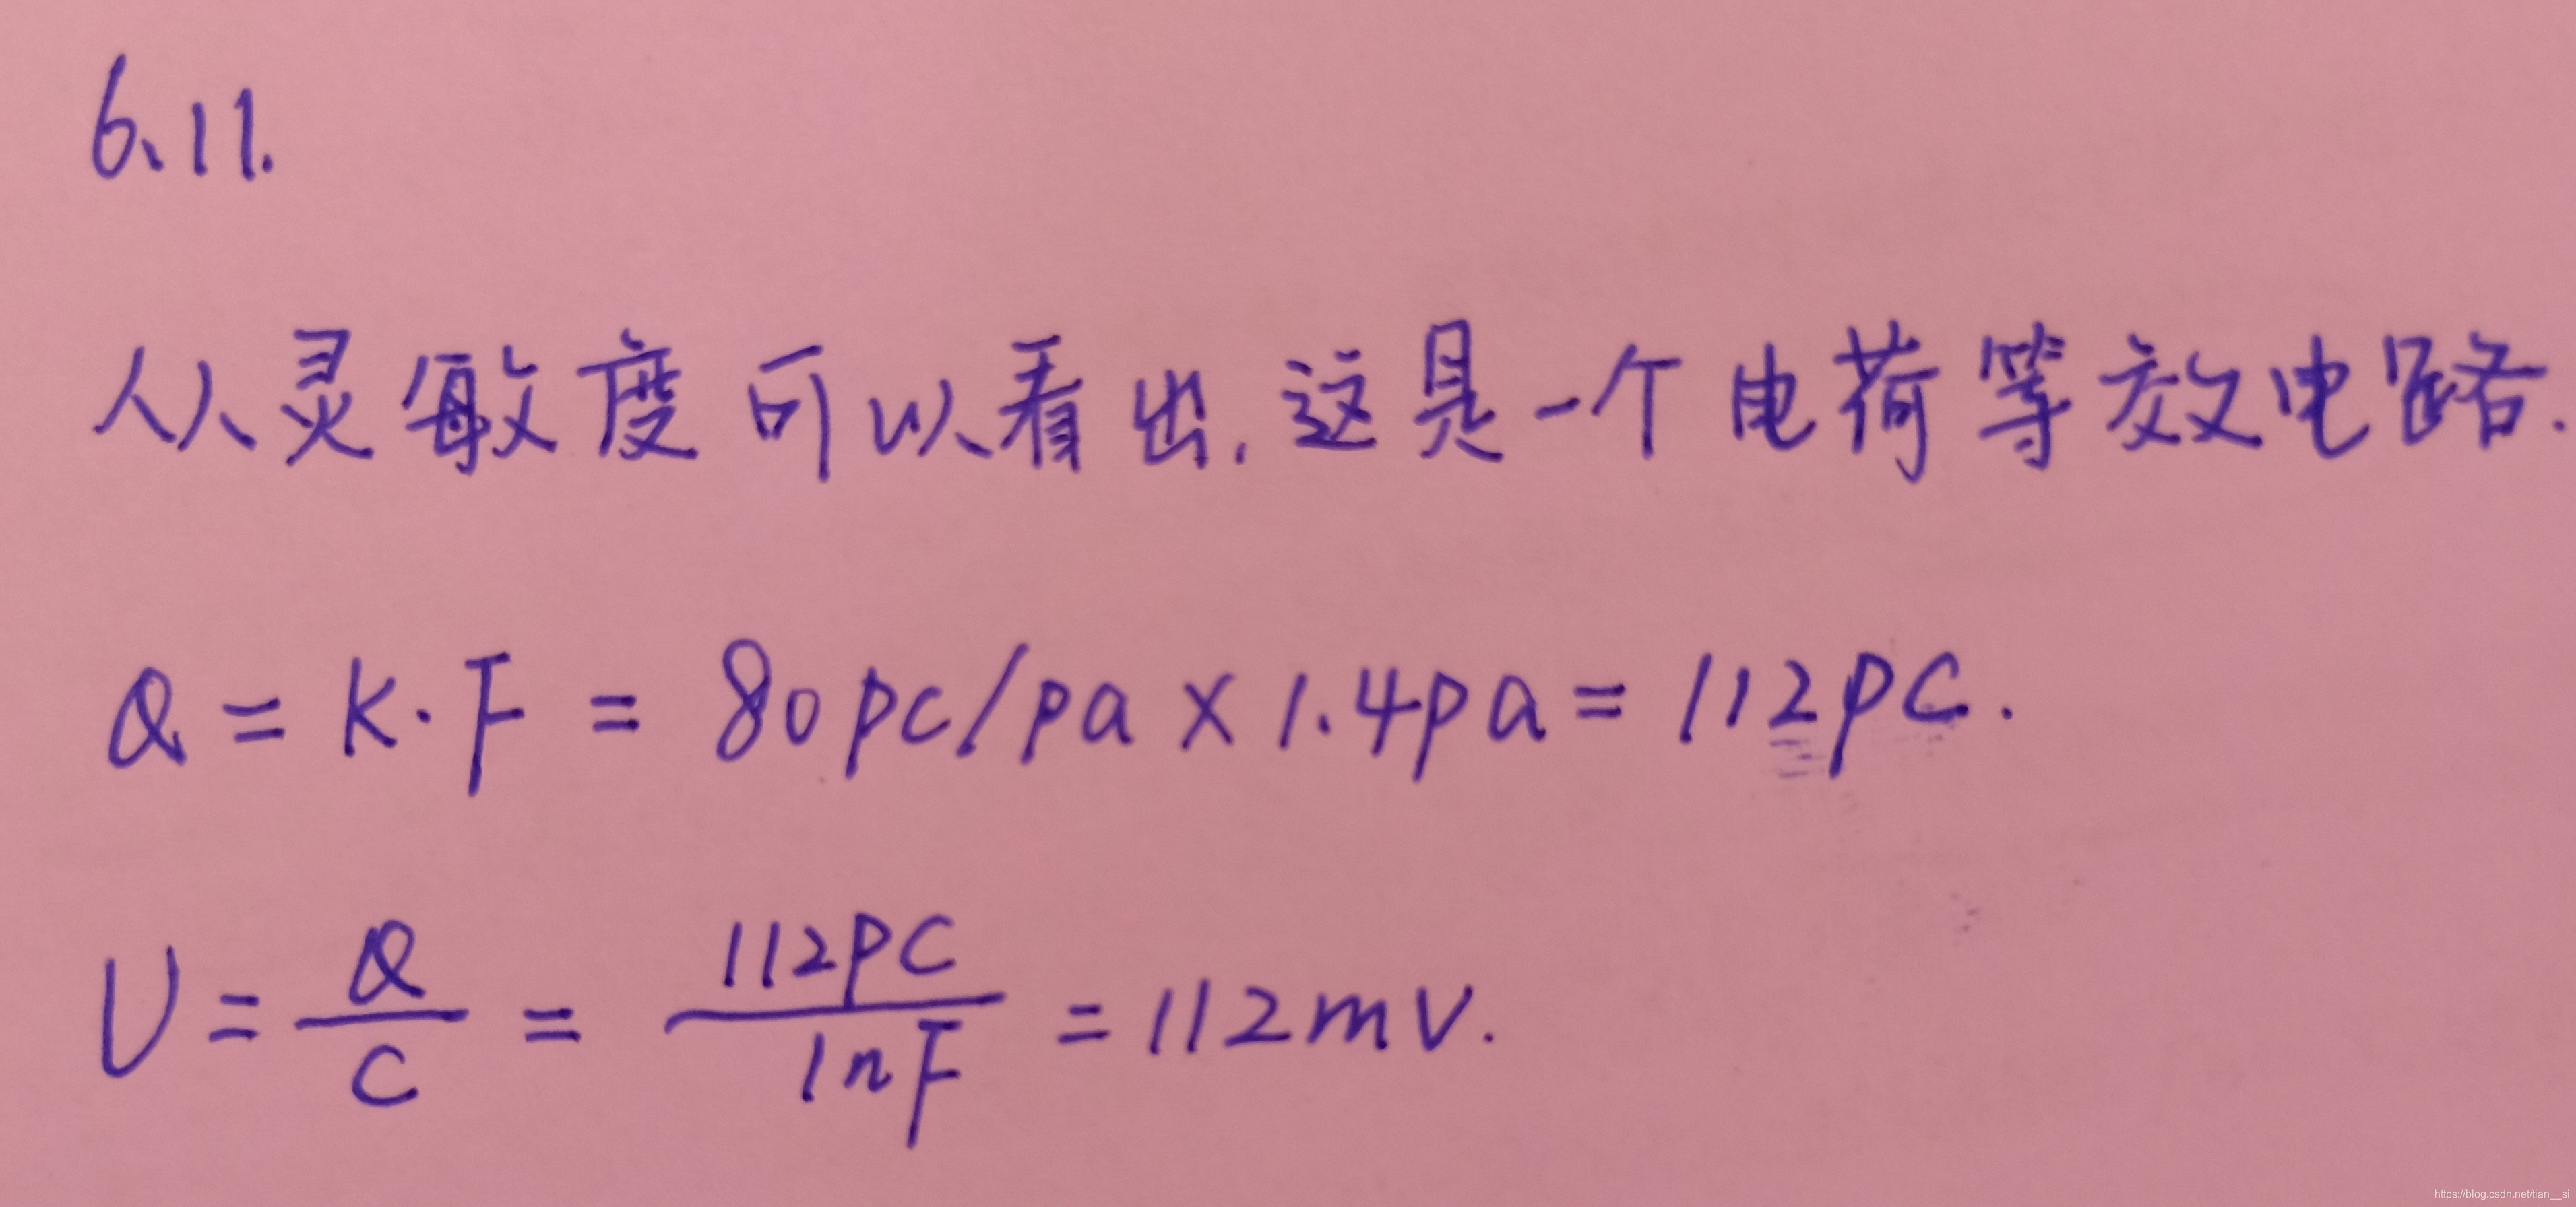 6.11.
从灵敏度可以看出.这是一个电荷等效电路.
Q = K·F = 80pc/pa × 1.4pa = 112pC.
U = Q/C = 112pC/1nF = 112mV.
https://blog.csdn.net/tian__si